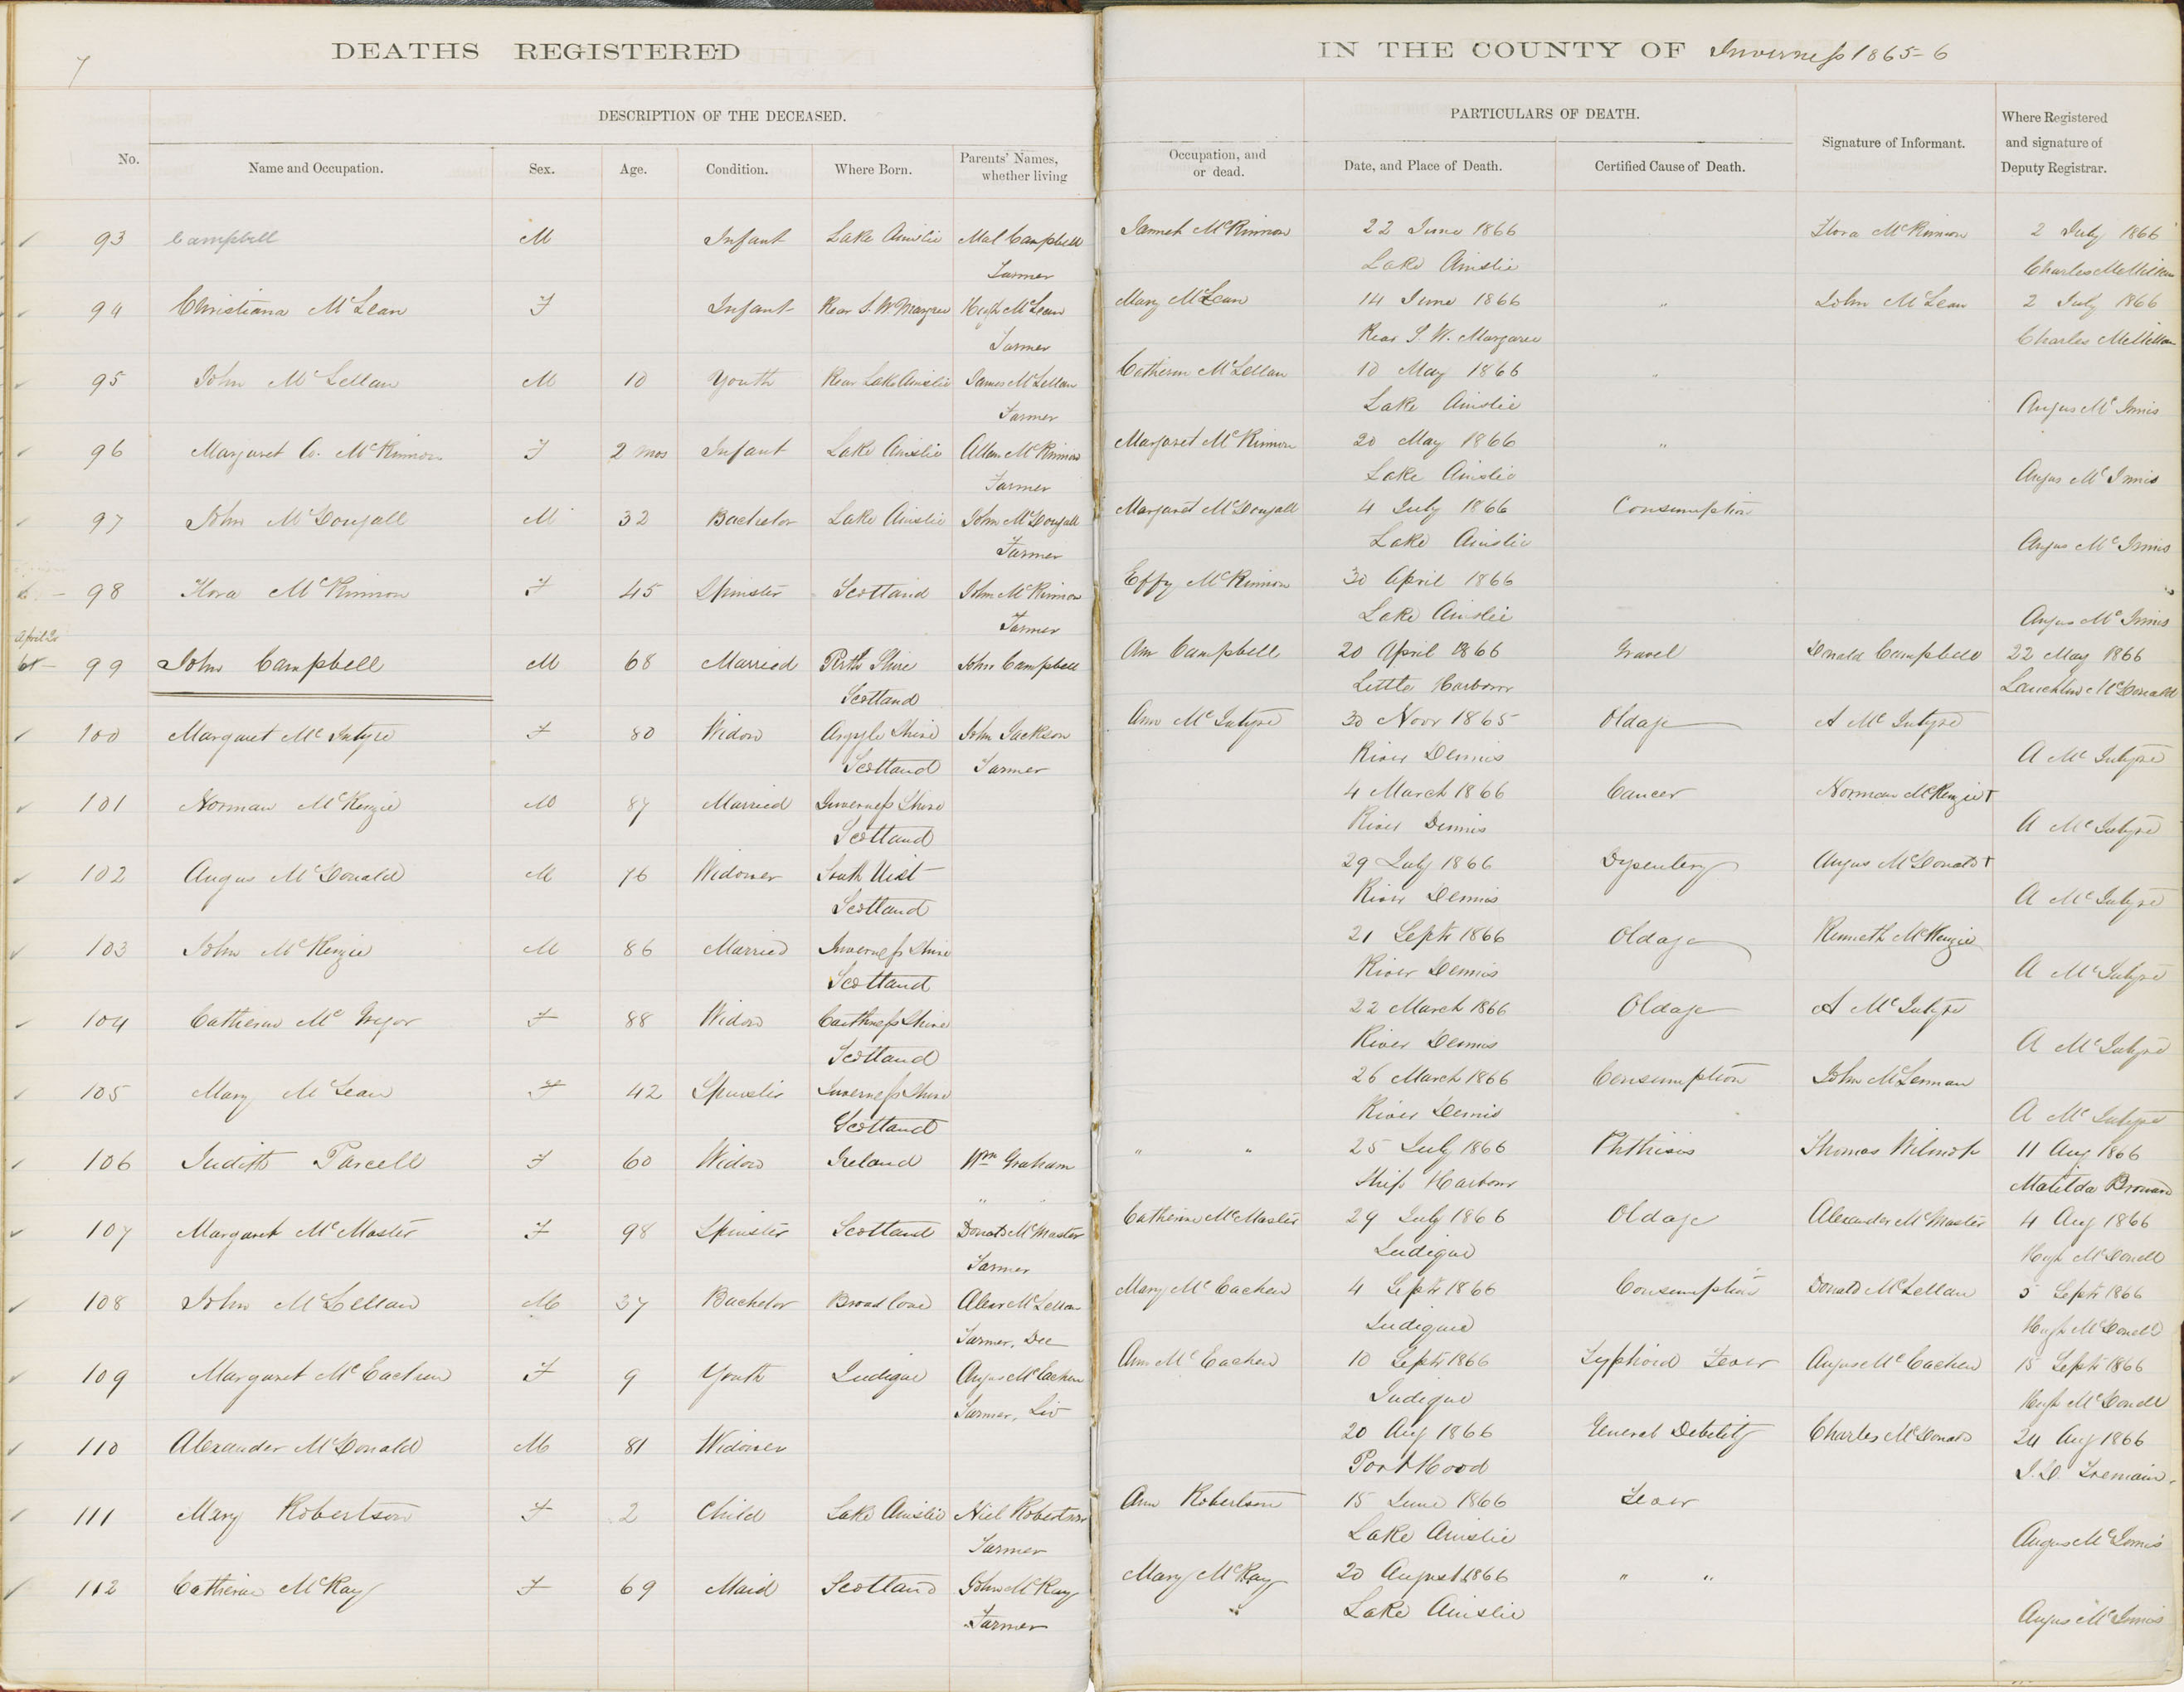 7
DEATHS REGISTERED IN THE COUNTY OF Inverness 1865-6
DESCRIPTION OF THE DECEASED. PARTICULARS OF DEATH.
No. Name and Occupation. Sex. Age. Condition. Where Born. Parents' Names, whether living Occupation, and or dead. Date, and Place of Death. Certified Cause of Death. Signature of Informant. Where Registered and signature of Deputy Registrar.
93 Campbell M Infant Lake Ainslie Mal Campbell Jannet McKinnon 22 June 1866 Flora McKinnon 2 July 1866
Farmer Lake Ainslie Charles McMillan
94 Christiana McLean F Infant Rear S. W. Margaree Hugh McLean Mary McLean 14 June 1866 " John McLean 2 July 1866
Farmer Rear S. W. Margaree Charles McMillan
95 John McLellan M 10 Youth Rear Lake Ainslie James McLellan Catherine McLellan 10 May 1866 "
Farmer Lake Ainslie Angus McInnis
96 Margaret C. McKinnon F 2 mos Infant Lake Ainslie Allan McKinnon Margaret McKinnon 20 May 1866 "
Farmer Lake Ainslie Angus McInnis
97 John McDougall M 32 Bachelor Lake Ainslie John McDougall Margaret McDougall 4 July 1866 Consumption
Farmer Lake Ainslie Angus McInnis
98 Flora McKinnon F 45 Spinster Scotland John McKinnon Effy McKinnon 30 April 1866
Farmer Lake Ainslie Angus McInnis
99 John Campbell M 68 Married Perth Shire John Campbell Ann Campbell 20 April 1866 Gravel Donald Campbell 22 May 1866
Scotland Little Harbour Lauchlin McDonald
100 Margaret McIntyre F 80 Widow Argyle Shire John Jackson Ann McIntyre 30 Novr 1865 Oldage A McIntyre
Scotland Farmer River Dennis A McIntyre
101 Norman McKenzie M 87 Married Inverness Shire 4 March 1866 Cancer Norman McKenzie +
Scotland River Dennis A McIntyre
102 Angus McDonald M 76 Widower South Uist 29 July 1866 Dysentery Angus McDonald +
Scotland River Dennis A McIntyre
103 John McKenzie M 86 Married Inverness Shire 21 Septr 1866 Oldage Kenneth McKenzie
Scotland River Dennis A McIntyre
104 Catherine McGregor F 88 Widow Caithness Shire 22 March 1866 Oldage A McIntyre
Scotland River Dennis A McIntyre
105 Mary McLean F 42 Spinster Inverness Shire 26 March 1866 Consumption John McLennan
Scotland River Dennis A McIntyre
106 Judith Purcell F 60 Widow Ireland Wm Graham " " 25 July 1866 Phthisis Thomas Wilmot 11 Aug 1866
" " Ship Harbour Matilda Brown
107 Margaret McMaster F 98 Spinster Scotland Donald McMaster Catherine McMaster 29 July 1866 Oldage Alexander McMaster 4 Aug 1866
Farmer Judique Hugh McDonell
108 John McLellan M 37 Bachelor Broad Cove Alexr McLellan Mary McEachen 4 Septr 1866 Consumption Donald McLellan 5 Septr 1866
Farmer, Dec Judique Hugh McDonell
109 Margaret McEachen F 9 Youth Judique Angus McEachen Ann McEachen 10 Septr 1866 Typhoid Fever Angus McEachen 15 Septr 1866
Farmer, Liv Judique Hugh McDonell
110 Alexander McDonald M 81 Widower 20 Aug 1866 General Debility Charles McDonald 24 Aug 1866
Port Hood J. D. Tremain
111 Mary Robertson F 2 Child Lake Ainslie Niel Robertson Ann Robertson 15 June 1866 Fever
Farmer Lake Ainslie Angus McInnis
112 Catherine McKay F 69 Maid Scotland John McKay Mary McKay 20 August 1866 " "
Farmer " Lake Ainslie Angus McInnis